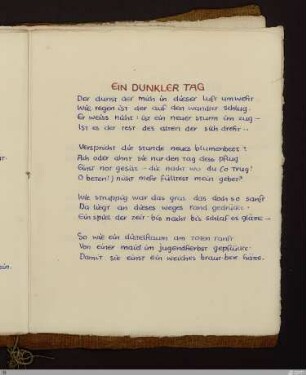 EIN DUNKLER TAG
Der dunst der mich in dieser luft umweht ·
Wie regen ist der auf den wandrer schlug.
Er weiss nicht: ist ein neuer sturm im zug –
Ist es der rest des alten der sich dreht? ·
Verspricht die stunde neues blumenbeet?
Ach oder ahnt sie nur den tag dem pflug
Einst nor gesäs – die nacht wo du (o trug!
O beten!) nicht mehr fülltest mein gebet?
Wie struppig war das gras das doch so sanft
Da liegt an dieses weges rand gedrückt ·
Ein spiel der zeit · bis nacht bis schlaf es
So wie ein distelsaum am roten ranft
Von einer maid im jugendherbst gepflückt
Damit sie einst ein weiches braut-bett habe.
ein.